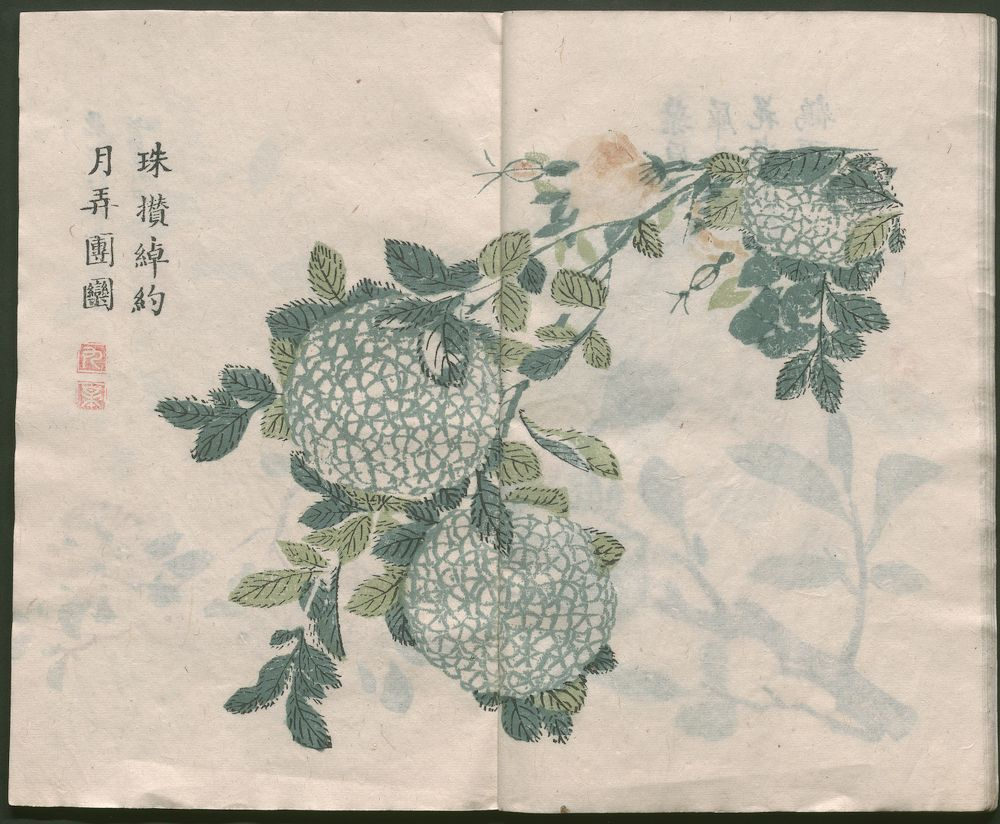 珠攢綽約
月弄團圞